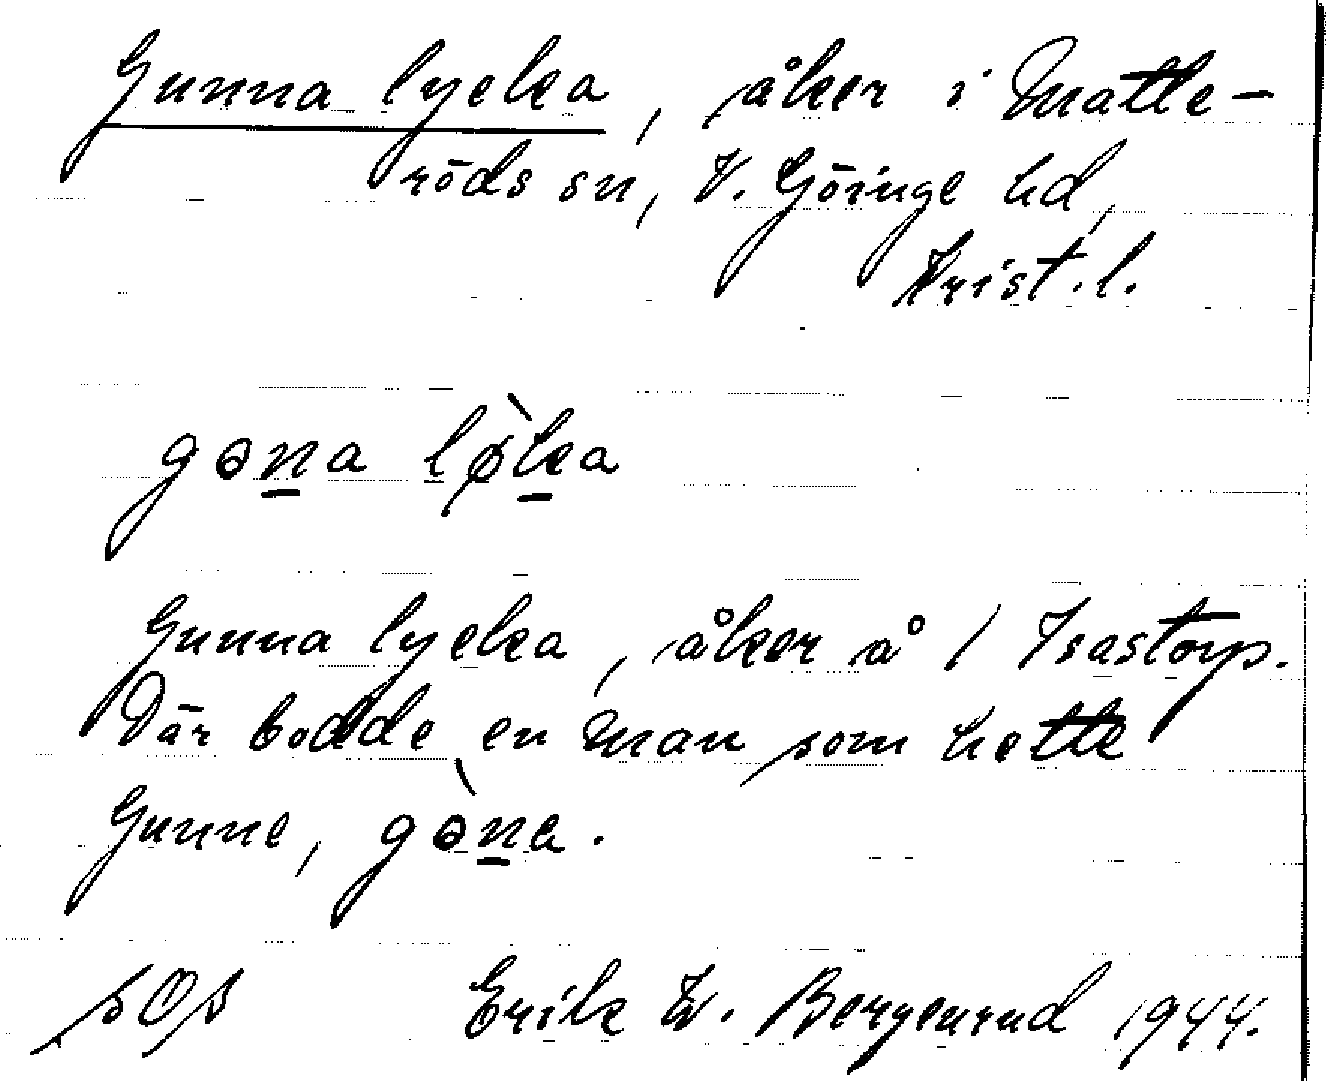 Gunna lycka, åker i Matte-
röds sn, V. Göinge hd,
Krist. l.
gɵna lø̀ka
Gunna lycka, åker å 1 Isastorp.
Där bodde en man som hette
Gunne, gɵ̀na.
sOs Erik W. Bergenrud 1944.